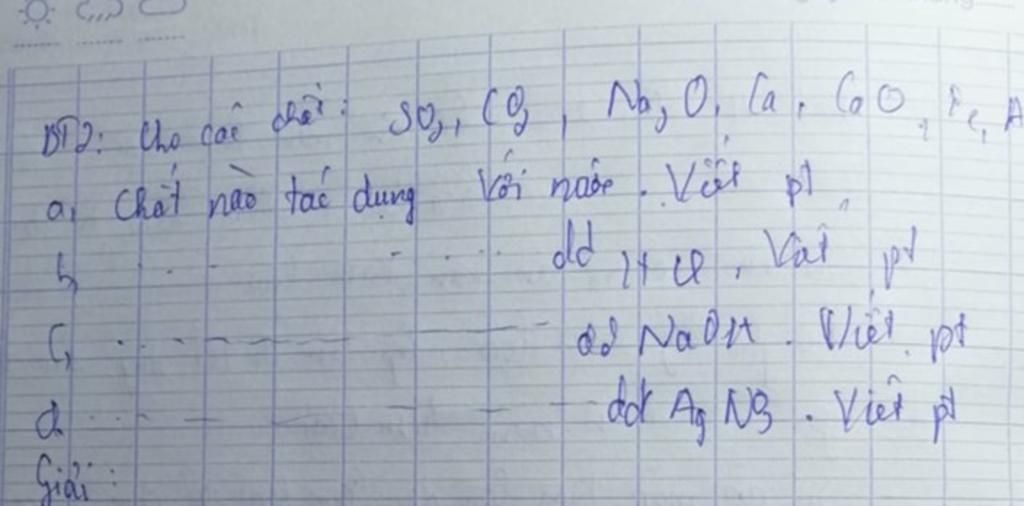 BT2: Cho các chất: SO2, CO2, Na2O, Ca, CaO, Fe, A
a, Chất nào tác dụng với nước. Viết pt
b, . . . - . . . dd HCl, Viết pt
c, . - - - - - - - dd NaOH. Viết pt
d. . . . - - - - dd AgNO3. Viết pt
Giải: